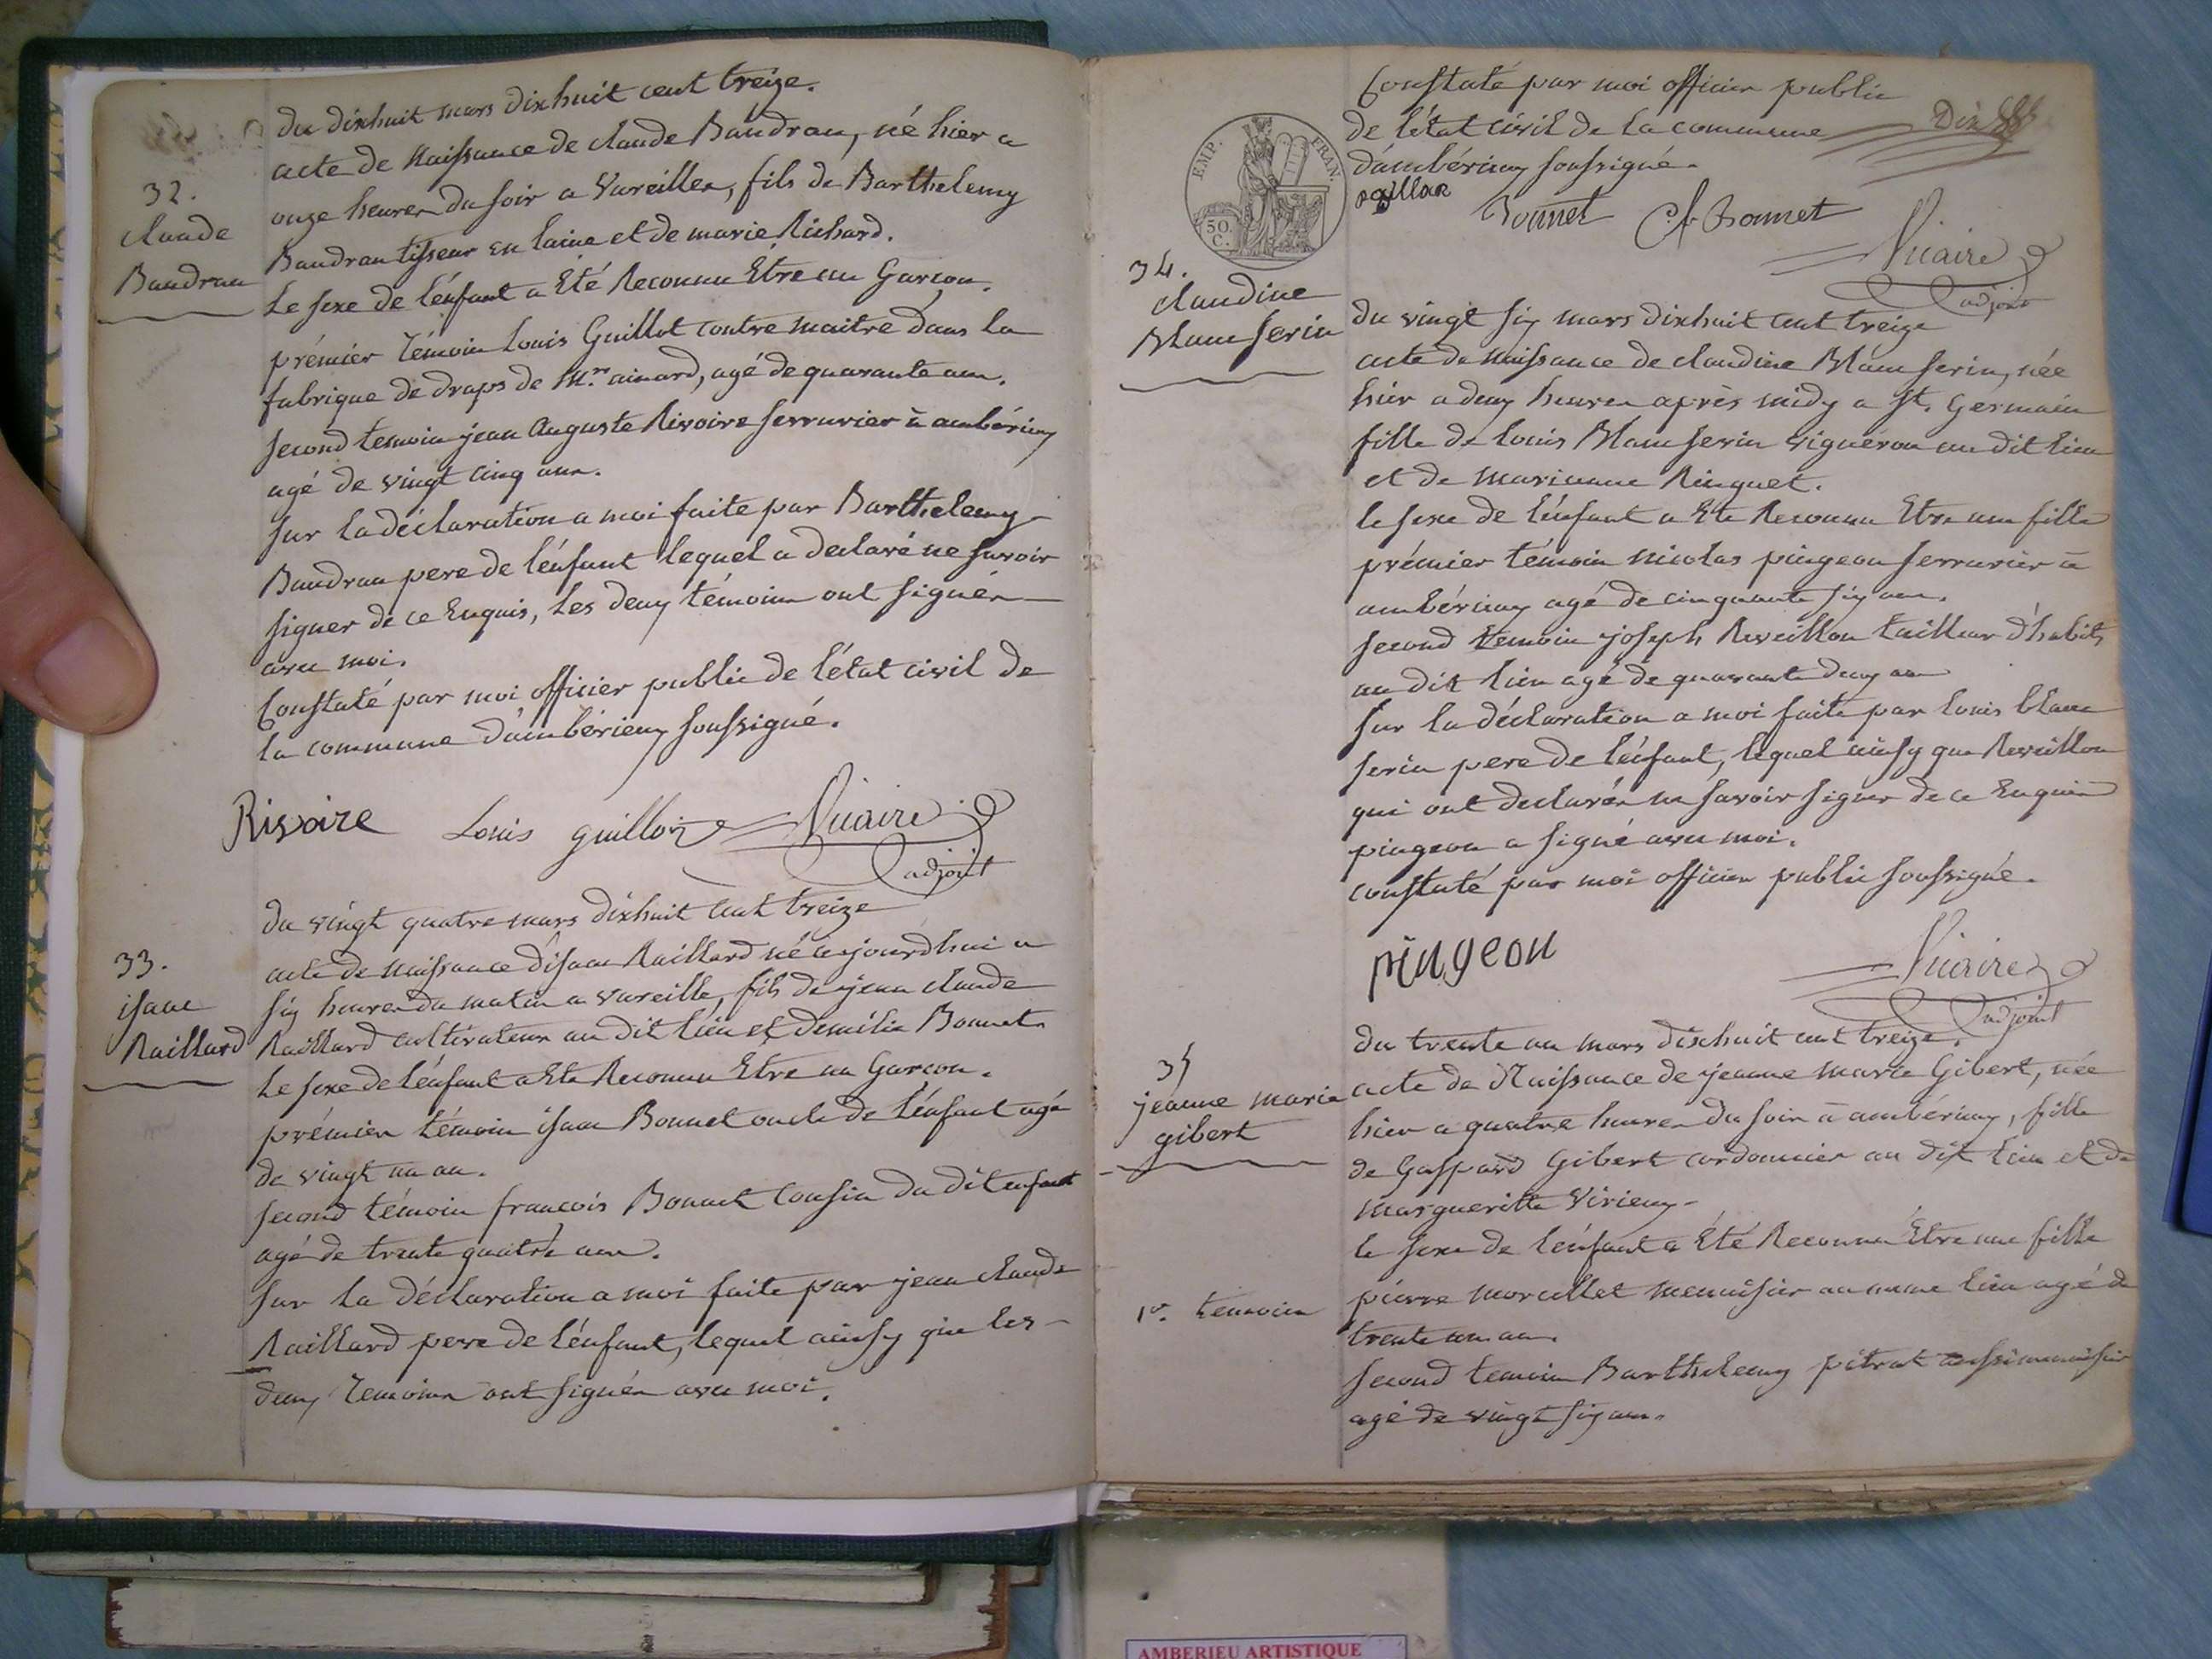 du dixhuit mars dixhuit cent treize.
acte de Naissance de claude Baudran, né hier a
onze heures du soir a Vareilles, fils de Barthelemy
Baudran tisseur en laine et de marie Richard.
Le sexe de l'énfant a Eté Reconnu Etre un Garçon.
prémier témoin Louis Guillot contre maitre dans la
fabrique de draps de Mr. ainard, agé de quarante ans.
second temoin jean Auguste Rivoire serrurier à ambérieux
agé de vingt cinq ans.
sur la déclaration a moi faite par Barthelemy
Baudran pere de l'énfant lequel a declaré ne savoir
signer de ce Enquis, Les deux témoins ont signés
avec moi.
Constaté par moi officier public de l'état civil de
la commune d'ambérieux soussigné.
32.
claude
Baudran
Rivoire Louis guillot Vicaire
adjoint
du vingt quatre mars dixhuit cent treize
acte de naissance d'isaac Raillard né cejourdhui a
six heures du matin a Vareille, fils de jean claude
Raillard cultivateur au dit lieu et d'emilie Bonnet.
Le sexe de l'énfant a Eté Reconnu Etre un Garçon.
prémier témoin isaac Bonnet oncle de l'énfant agé
de vingt un an.
second témoin françois Bonnet Cousin du dit enfant
agé de trente quatre ans.
sur la déclaration a moi faite par jean claude
Raillard pere de l'énfant, lequel ainsy que les
deux temoins ont signés avec moi.
33.
isaac
Raillard
Constaté par moi officier public
de l'état civil de la commune
d'ambérieux soussigné.
EMP. FRAN.
50.
C.
Bonnet Bonnet
Vicaire
adjoint
34.
claudine
Blanc serin
du vingt six mars dixhuit cent treize
acte de naissance de claudine Blanc serin, née
hier a deux heures après midy a St. Germain
fille de louis Blanc serin vigneron au dit lieu
et de marianne Ringuet.
le sexe de l'énfant a Eté Reconnu Etre une fille
prémier témoin nicolas pingeon serrurier à
ambérieux agé de cinquante six ans.
second temoin joseph Reveillon tailleur d'habits
au dit lieu agé de quarante deux ans
sur la déclaration a moi faite par louis blanc
serin pere de l'énfant, lequel ainsy que Reveillon
qui ont declarés ne savoir signer de ce Enquis
pingeon a signé avec moi.
constaté par moi officier public soussigné.
pingeon Vicaire
adjoint
35
jeanne marie
gibert
du trente un mars dixhuit cent treize.
acte de Naissance de jeanne marie Gibert, née
hier a quatre heures du soir à ambérieux, fille
de Gaspard Gibert cordonnier au dit lieu et de
margueritte Virieux.
le sexe de l'énfant a Eté Reconnu Etre une fille
1er. temoin
pierre morcellet menuisier au meme lieu agé de
trente un an.
second temoin Barthelemy pitrat aussi menuisier
agé de vingt six ans.
AMBERIEU ARTISTIQUE